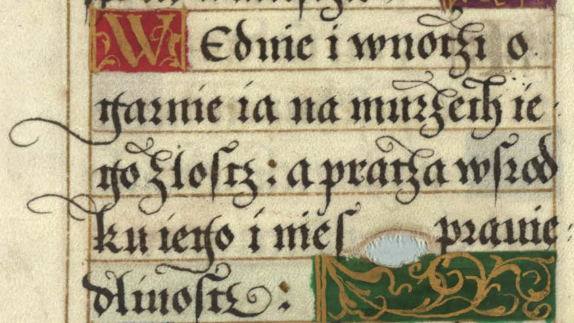 WEdnie i wnoczi o
garnie ia na murzech ie
go zloscz : a pracza wsrod
ku iego i nies prawie
dliwoscz :